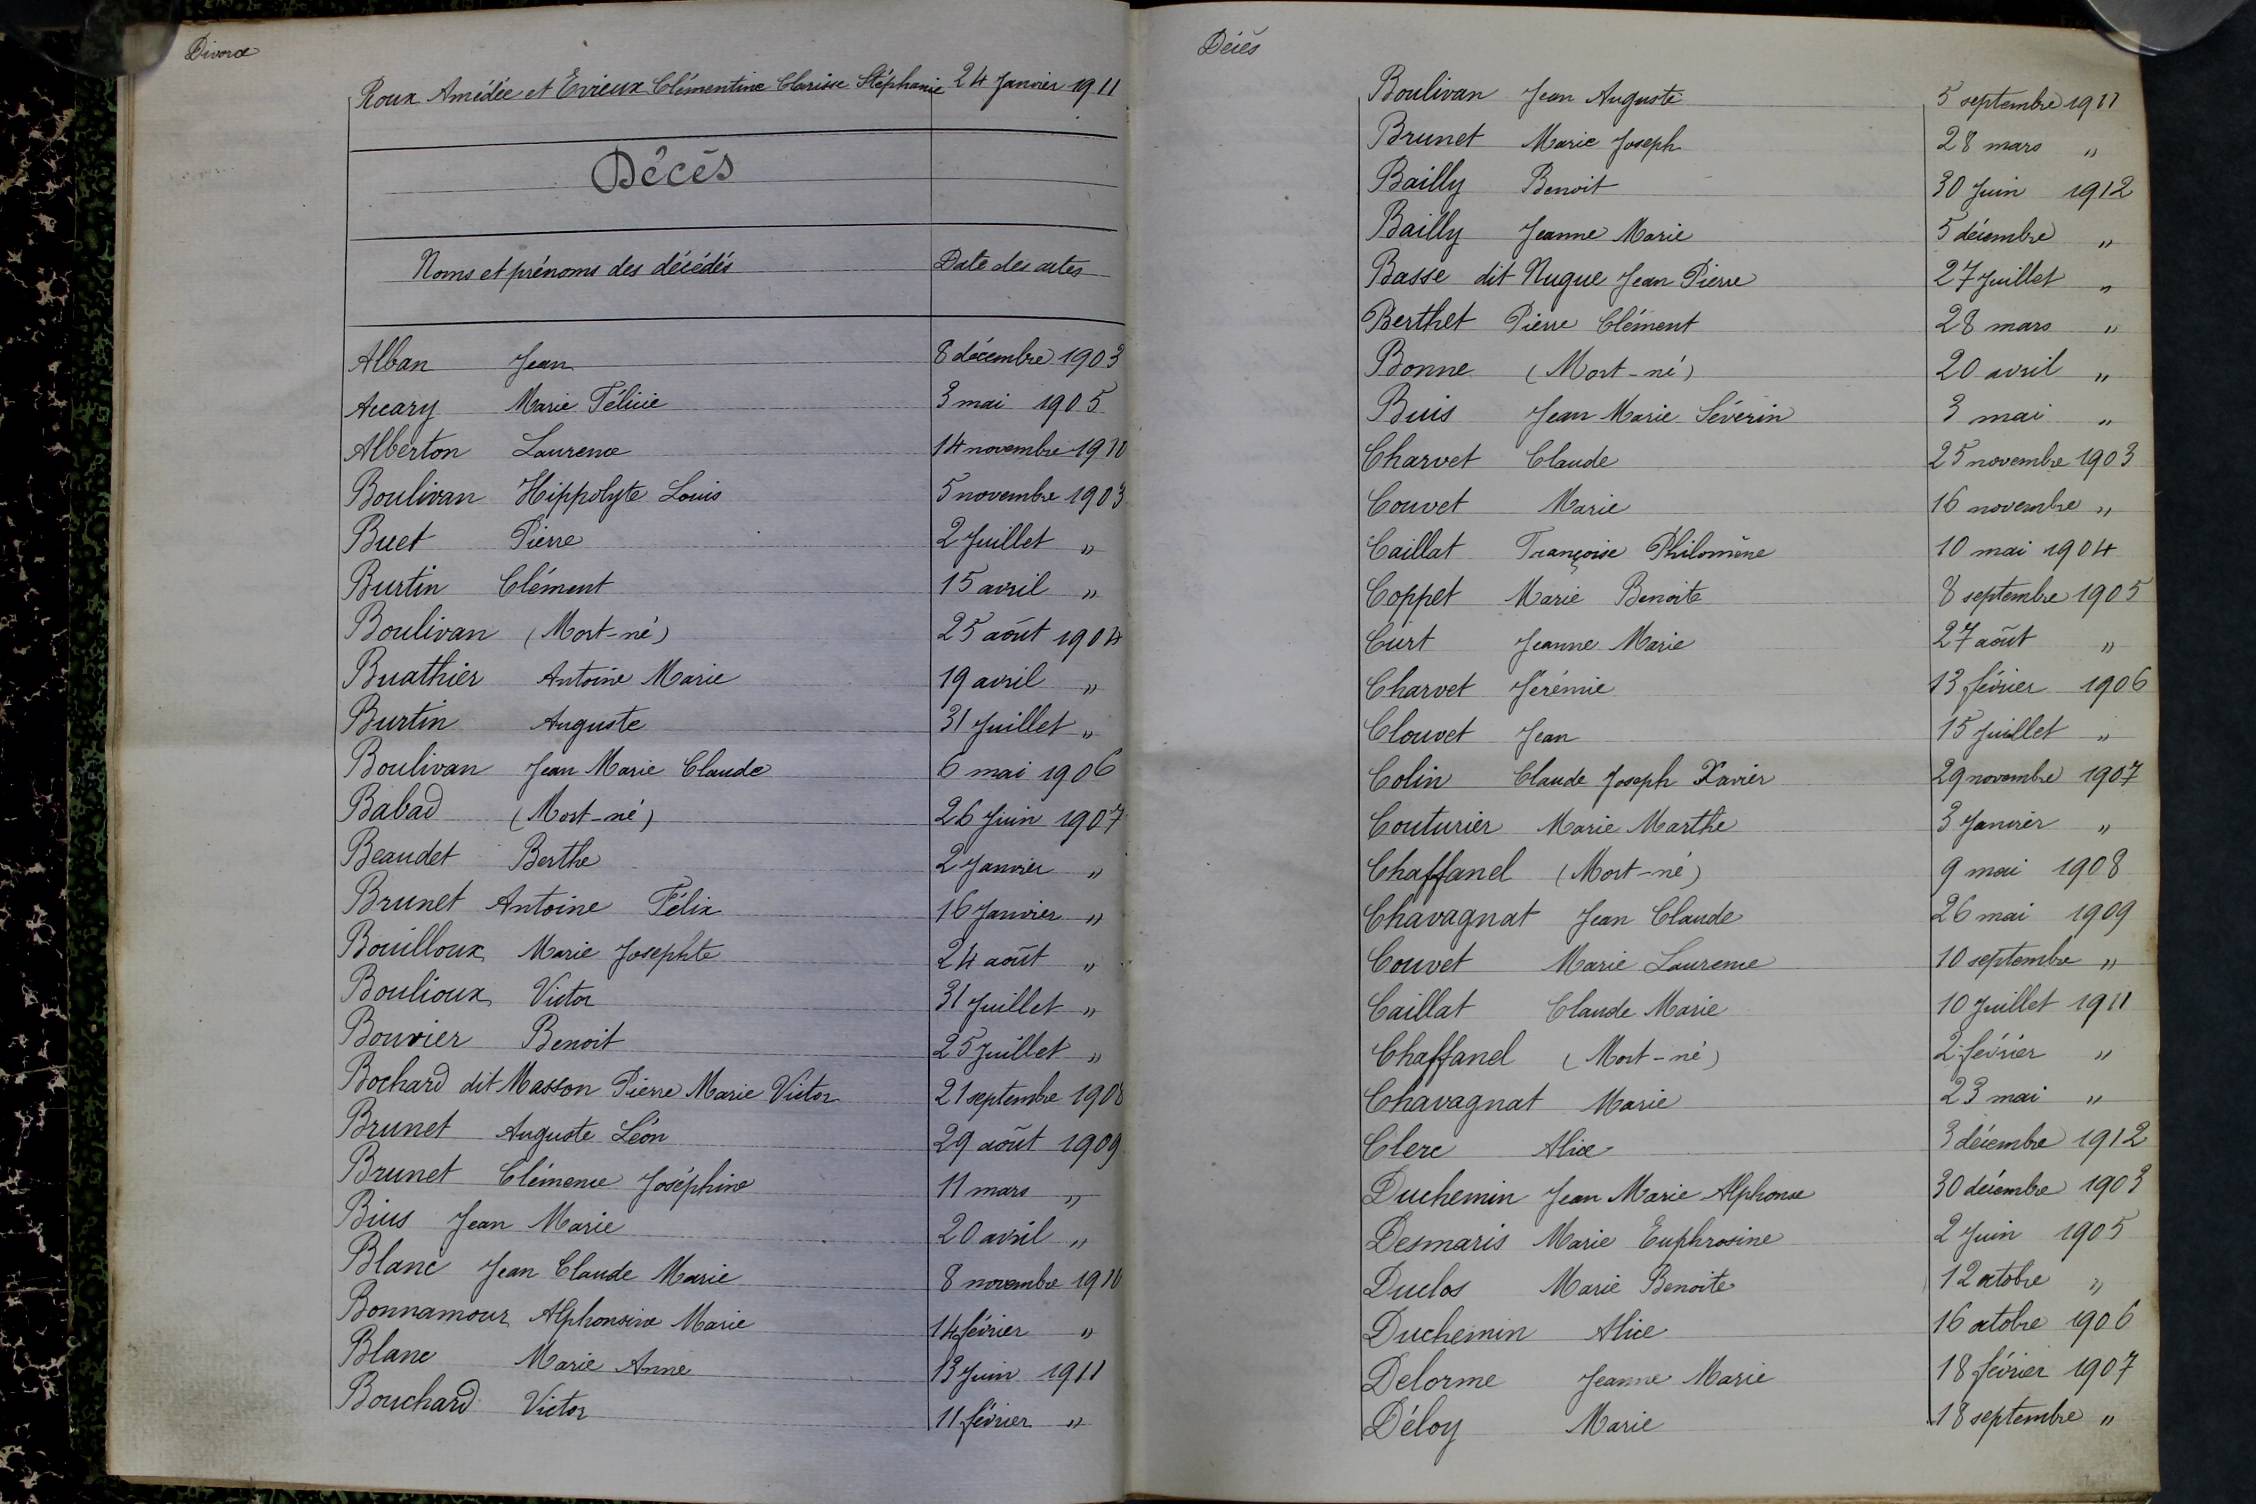 Divorce
Roux Amédée et Evieux Clémentine Clarisse Stéphanie 24 Janvier 1911
Décès
Noms et prénoms des décédés Date des actes
Alban Jean 8 décembre 1903
Accary Marie Félicie 3 mai 1905
Alberton Laurence 14 novembre 1910
Boulivan Hippolyte Louis 5 novembre 1903
Buet Pierre 2 Juillet "
Burtin Clément 15 avril "
Boulivan (Mort-né) 25 août 1904
Buathier Antoine Marie 19 avril "
Burtin Auguste 31 Juillet "
Boulivan Jean Marie Claude 6 mai 1906
Babad (Mort-né) 26 Juin 1907
Beaudet Berthe 2 Janvier "
Brunet Antoine Félix 16 Janvier "
Bouilloux Marie Josephte 24 août "
Boulioux Victor 31 Juillet "
Bouvier Benoit 25 Juillet "
Bochard dit Masson Pierre Marie Victor 21 septembre 1908
Brunet Auguste Léon 29 août 1909
Brunet Clémence Joséphine 11 mars "
Bius Jean Marie 20 avril "
Blanc Jean Claude Marie 8 novembre 1910
Bonnamour Alphonsine Marie 14 février "
Blanc Marie Anne 13 Juin 1911
Bouchard Victor 11 février "
Décès
Boulivan Jean Auguste 5 septembre 1911
Brunet Marie Joseph 28 mars "
Bailly Benoit 30 Juin 1912
Bailly Jeanne Marie 5 décembre "
Basse dit Nugue Jean Pierre 27 Juillet "
Berthet Pierre Clément 28 mars "
Bonne (Mort-né) 20 avril "
Buis Jean Marie Séverin 3 mai "
Charvet Claude 25 novembre 1903
Couvet Marie 16 novembre "
Caillat Françoise Philomène 10 mai 1904
Coppet Marie Benoite 8 septembre 1905
Curt Jeanne Marie 27 août "
Charvet Jérémie 13 février 1906
Clouvet Jean 15 Juillet "
Colin Claude Joseph Xavier 29 novembre 1907
Couturier Marie Marthe 3 Janvier "
Chaffanel (Mort-né) 9 mai 1908
Chavagnat Jean Claude 26 mai 1909
Couvet Marie Laurence 10 septembre "
Caillat Claude Marie 10 Juillet 1911
Chaffanel (Mort-né) 2 février "
Chavagnat Marie 23 mai "
Clerc Alice 3 décembre 1912
Duchemin Jean Marie Alphonse 30 décembre 1903
Desmaris Marie Euphrosine 2 Juin 1905
Duclos Marie Benoite 12 octobre "
Duchemin Alice 16 octobre 1906
Delorme Jeanne Marie 18 février 1907
Déloy Marie 18 septembre "